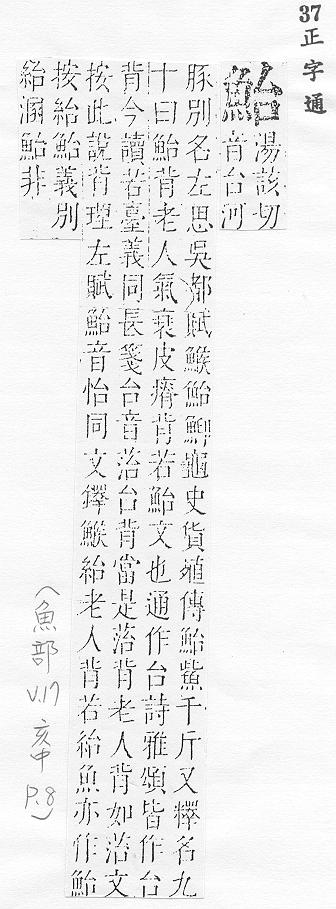 37 正字通
鮐
湯該切
音台河
豚別名左思吳都賦鯸鮐鮣龜史貨殖傳鮐鮆千斤又釋名九
十曰鮐背老人氣衰皮瘠背若鮐文也通作台詩雅頌皆作台
背今讀若臺義同長箋台音菭台背當是菭背老人背如菭文
按此說背理左賦鮐音怡同文鐸鯸紿老人背若紿魚亦作鮐
按紿鮐義別
紿溷鮐非
(魚部 V.17 亥中 P.8)